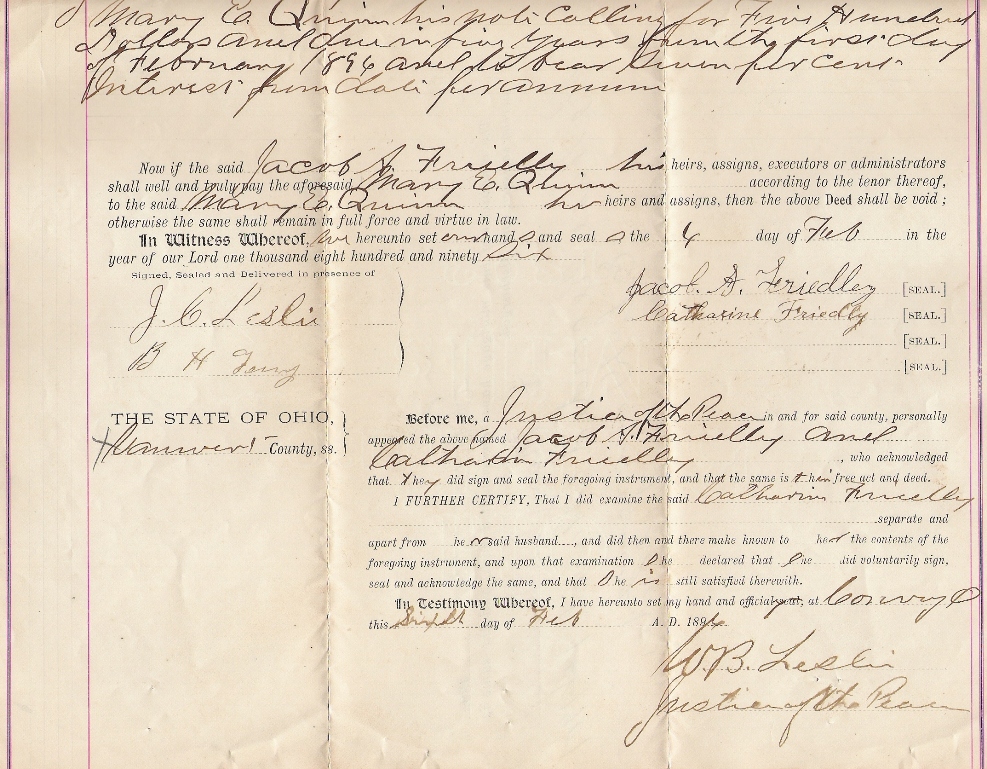 Mary E. Quinn his note calling for Five Hundred
Dollars and due in five years from the first day
of February 1896 and to bear Seven per cent
Interest from date per annum
Now if the said Jacob A. Friedly his heirs, assigns, executors or administrators
shall well and truly pay the aforesaid Mary E. Quinn according to the tenor thereof,
to the said Mary E. Quinn her heirs and assigns, then the above Deed shall be void;
otherwise the same shall remain in full force and virtue in law.
In Witness Whereof, we hereunto set our hands and seals the 4 day of Feb in the
year of our Lord one thousand eight hundred and ninety Six
Signed, Sealed and Delivered in presence of
Jacob. A. Friedley [SEAL.]
J. C. Leslie
Catharine Friedly [SEAL.]
[SEAL.]
B H
[SEAL.]
THE STATE OF OHIO,
Vanwert County, ss.
Before me, a Justice of the Peace in and for said county, personally
appeared the above named Jacob A. Friedly and
Catharin Friedly, who acknowledged
that They did sign and seal the foregoing instrument, and that the same is their free act and deed.
I FURTHER CERTIFY, That I did examine the said Catharin Friedly
separate and
apart from her said husband...., and did then and there make known to her the contents of the
foregoing instrument, and upon that examination She declared that She did voluntarily sign,
seal and acknowledge the same, and that She is still satisfied therewith.
In Testimony Whereof, I have hereunto set my hand and official seal, at Convoy O
this Sixth day of Feb A. D. 1896
W. B. Leslie
Justice of the Peace